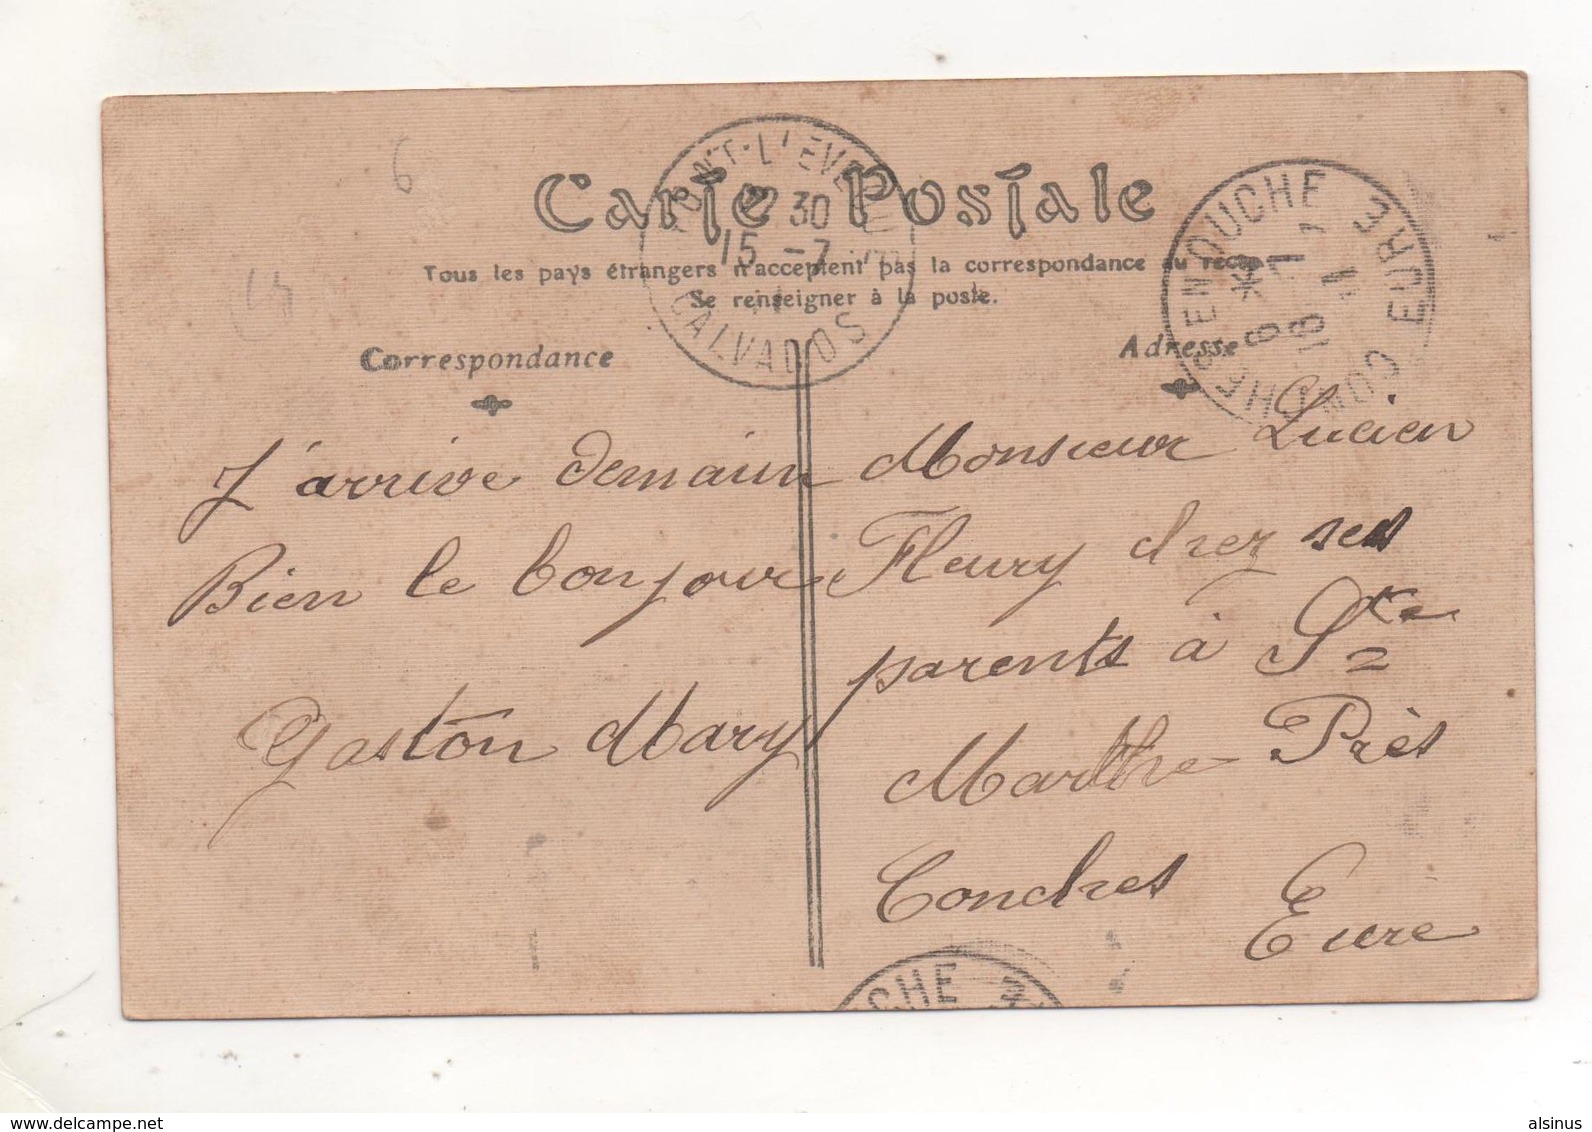 6
Carte Postale
Tous les pays étrangers n'acceptent pas la correspondance au recto
Se renseigner à la poste.
PONT-L'EVEQUE
30
15 -7
11
CALVADOS
CONCHES-EN-OUCHE EURE
16 -7
11
Correspondance
Adresse
J'arrive demain
Bien le bonjour
Gaston Mary
Monsieur Lucien
Fleury chez ses
parents à Ste
Marthe Près
Conches
Eure
CHE
delcampe.net
alsinus